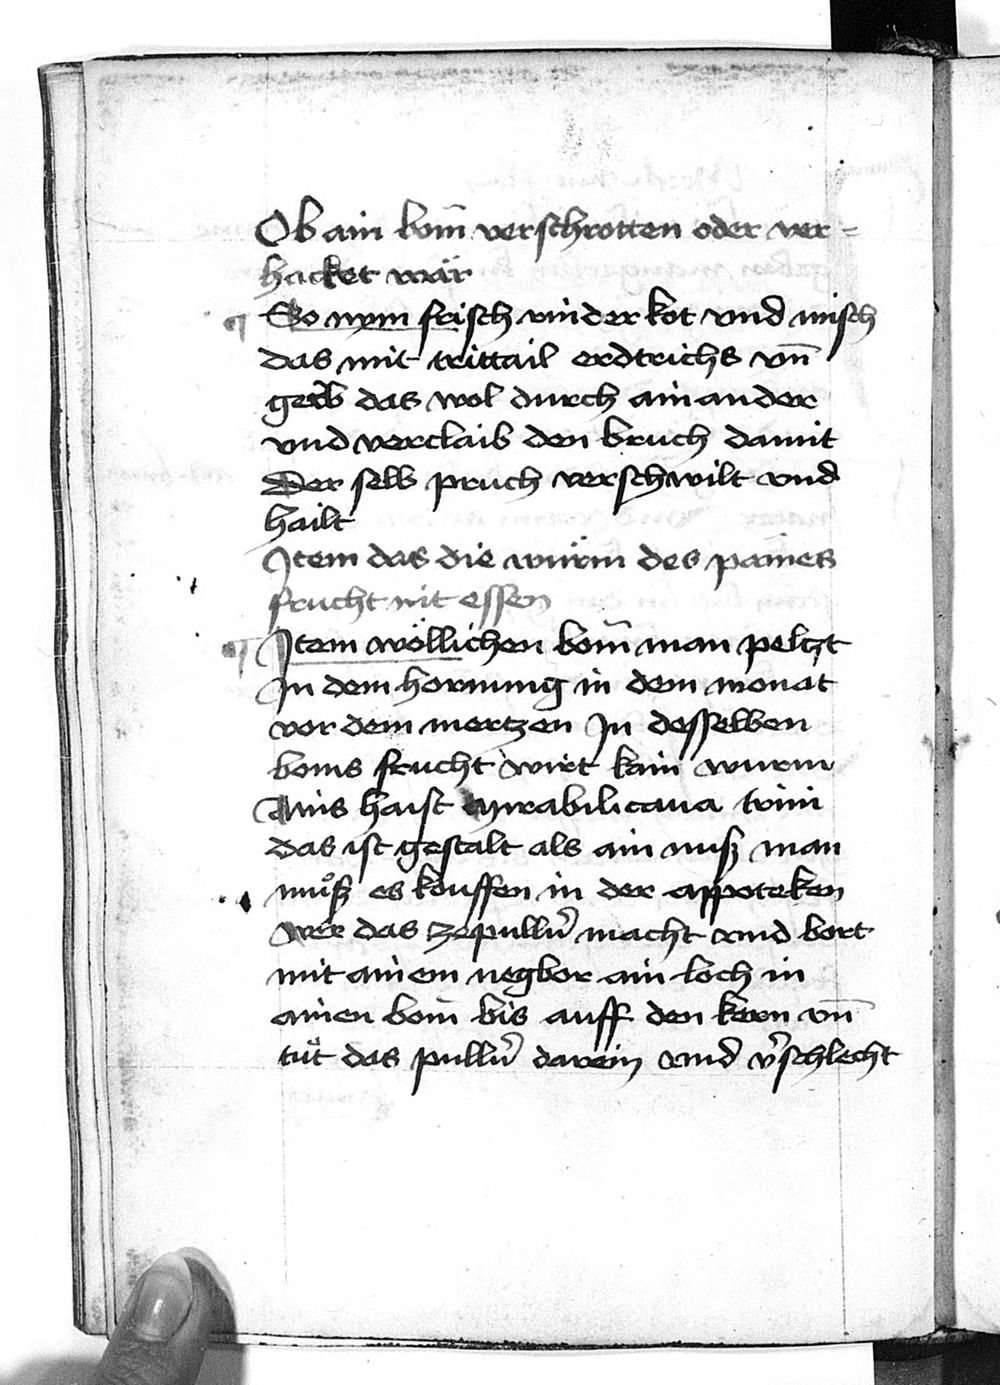 Ob ain bom̄ verschrotten oder ver-
hacket wär
¶ So nym frisch rinder kot vnd misch
das mit trittail erdtrichs vn̄
gerb das wol durch ain ander
vnd verclaib den bruch damit
Der selb pruch verschwilt vnd
hailt
Item das die würm des pames
frucht nit essen
¶ Item wöllichen bom̄ man peltzt
In dem hornung in dem monat
vor dem mertzen In desselben
boms frucht wirt kain wurm
Ains haist mirabili caua
das ist gestalt als ain nusz man
muͦsz es kouffen in der appoteken
wer das ze pulluͤ macht vnd bort
mit ainem negbor ain loch in
ainen bom̄ bis auff den kern vn̄
tuͤt das pulluͤ darein vnd v̓schlecht